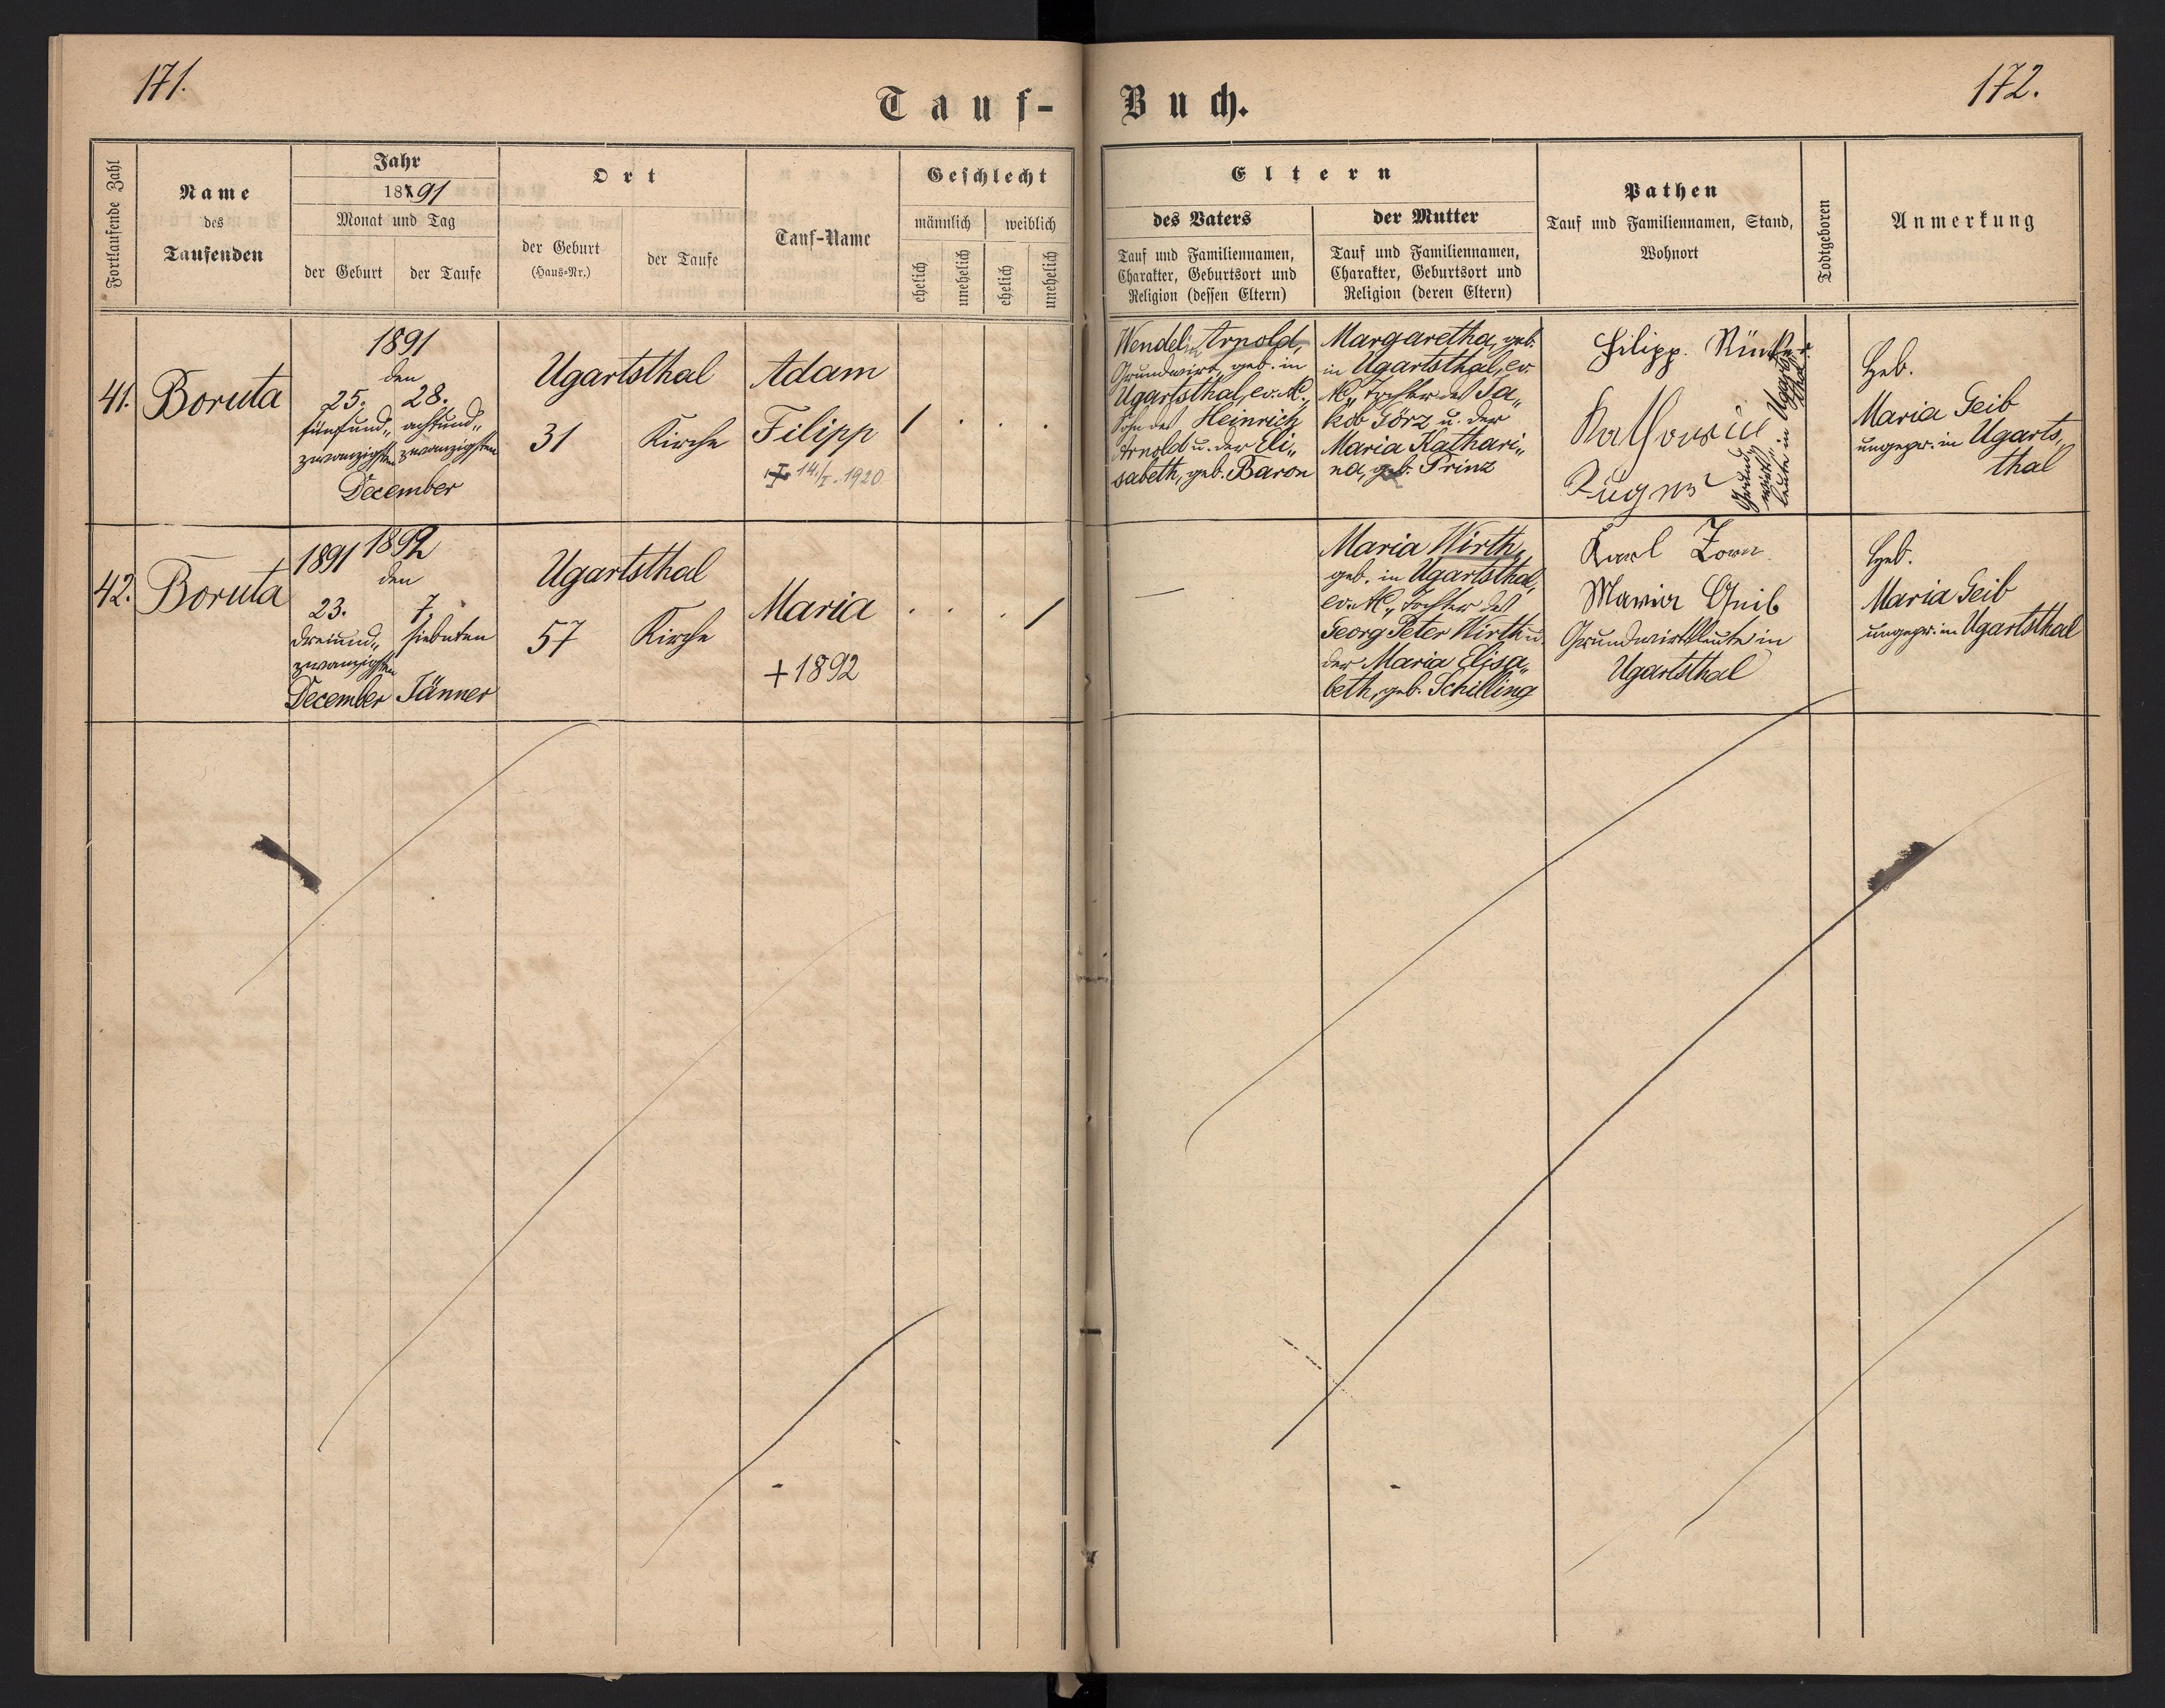 171.
172.
Tauf-
Buch.
Fortlaufende Zahl
Name
des
Taufenden
Jahr
1891
Monat und Tag
der Geburt
der Taufe
Ort
der Geburt
(Haus-Nr.)
der Taufe
Tauf-Name
Geschlecht
männlich
weiblich
ehelich
unehelich
ehelich
unehelich
Eltern
des Vaters
Tauf und Familiennamen,
Charakter, Geburtsort und
Religion (dessen Eltern)
der Mutter
Tauf und Familiennamen,
Charakter, Geburtsort und
Religion (deren Eltern)
Pathen
Tauf und Familiennamen, Stand,
Wohnort
Todtgeboren
Anmerkung
41.
Boruta
1891
den
25. 28.
fünfund„ achtund„
zwanzigsten zwanzigsten
December
Ugartsthal
31 Kirche
Adam
Filipp
14./I. 1920
1 . . .
Wendelin Arnold,
Grundwirt, geb. in
Ugartsthal, ev. A.,
Sohn des Heinrich
Arnold u. der Eli„
sabeth, geb. Baron
Margaretha, geb.
in Ugartsthal, ev.
A., Tochter des Ja„
kob Görz u. der
Maria Kathari„
na, geb. Prinz
Filipp
Grund„
wirts„
leute in Ugarts„
thal
Heb.
Maria Geib
ungepr. in Ugarts„
thal
42.
Boruta
1891 1892
den
23. 7.
dreiund„ siebenten
zwanzigsten
December Jänner
Ugartsthal
57 Kirche
Maria
+ 1892
. . . 1
—
Maria Wirth,
geb. in Ugartsthal,
ev. A., Tochter des
Georg Peter Wirth u.
der Maria Elisa„
beth, geb. Schilling
Karl Zorn
Maria Geib
Grundwirtsleute in
Ugartsthal
Heb.
Maria Geib
ungepr. in Ugartsthal